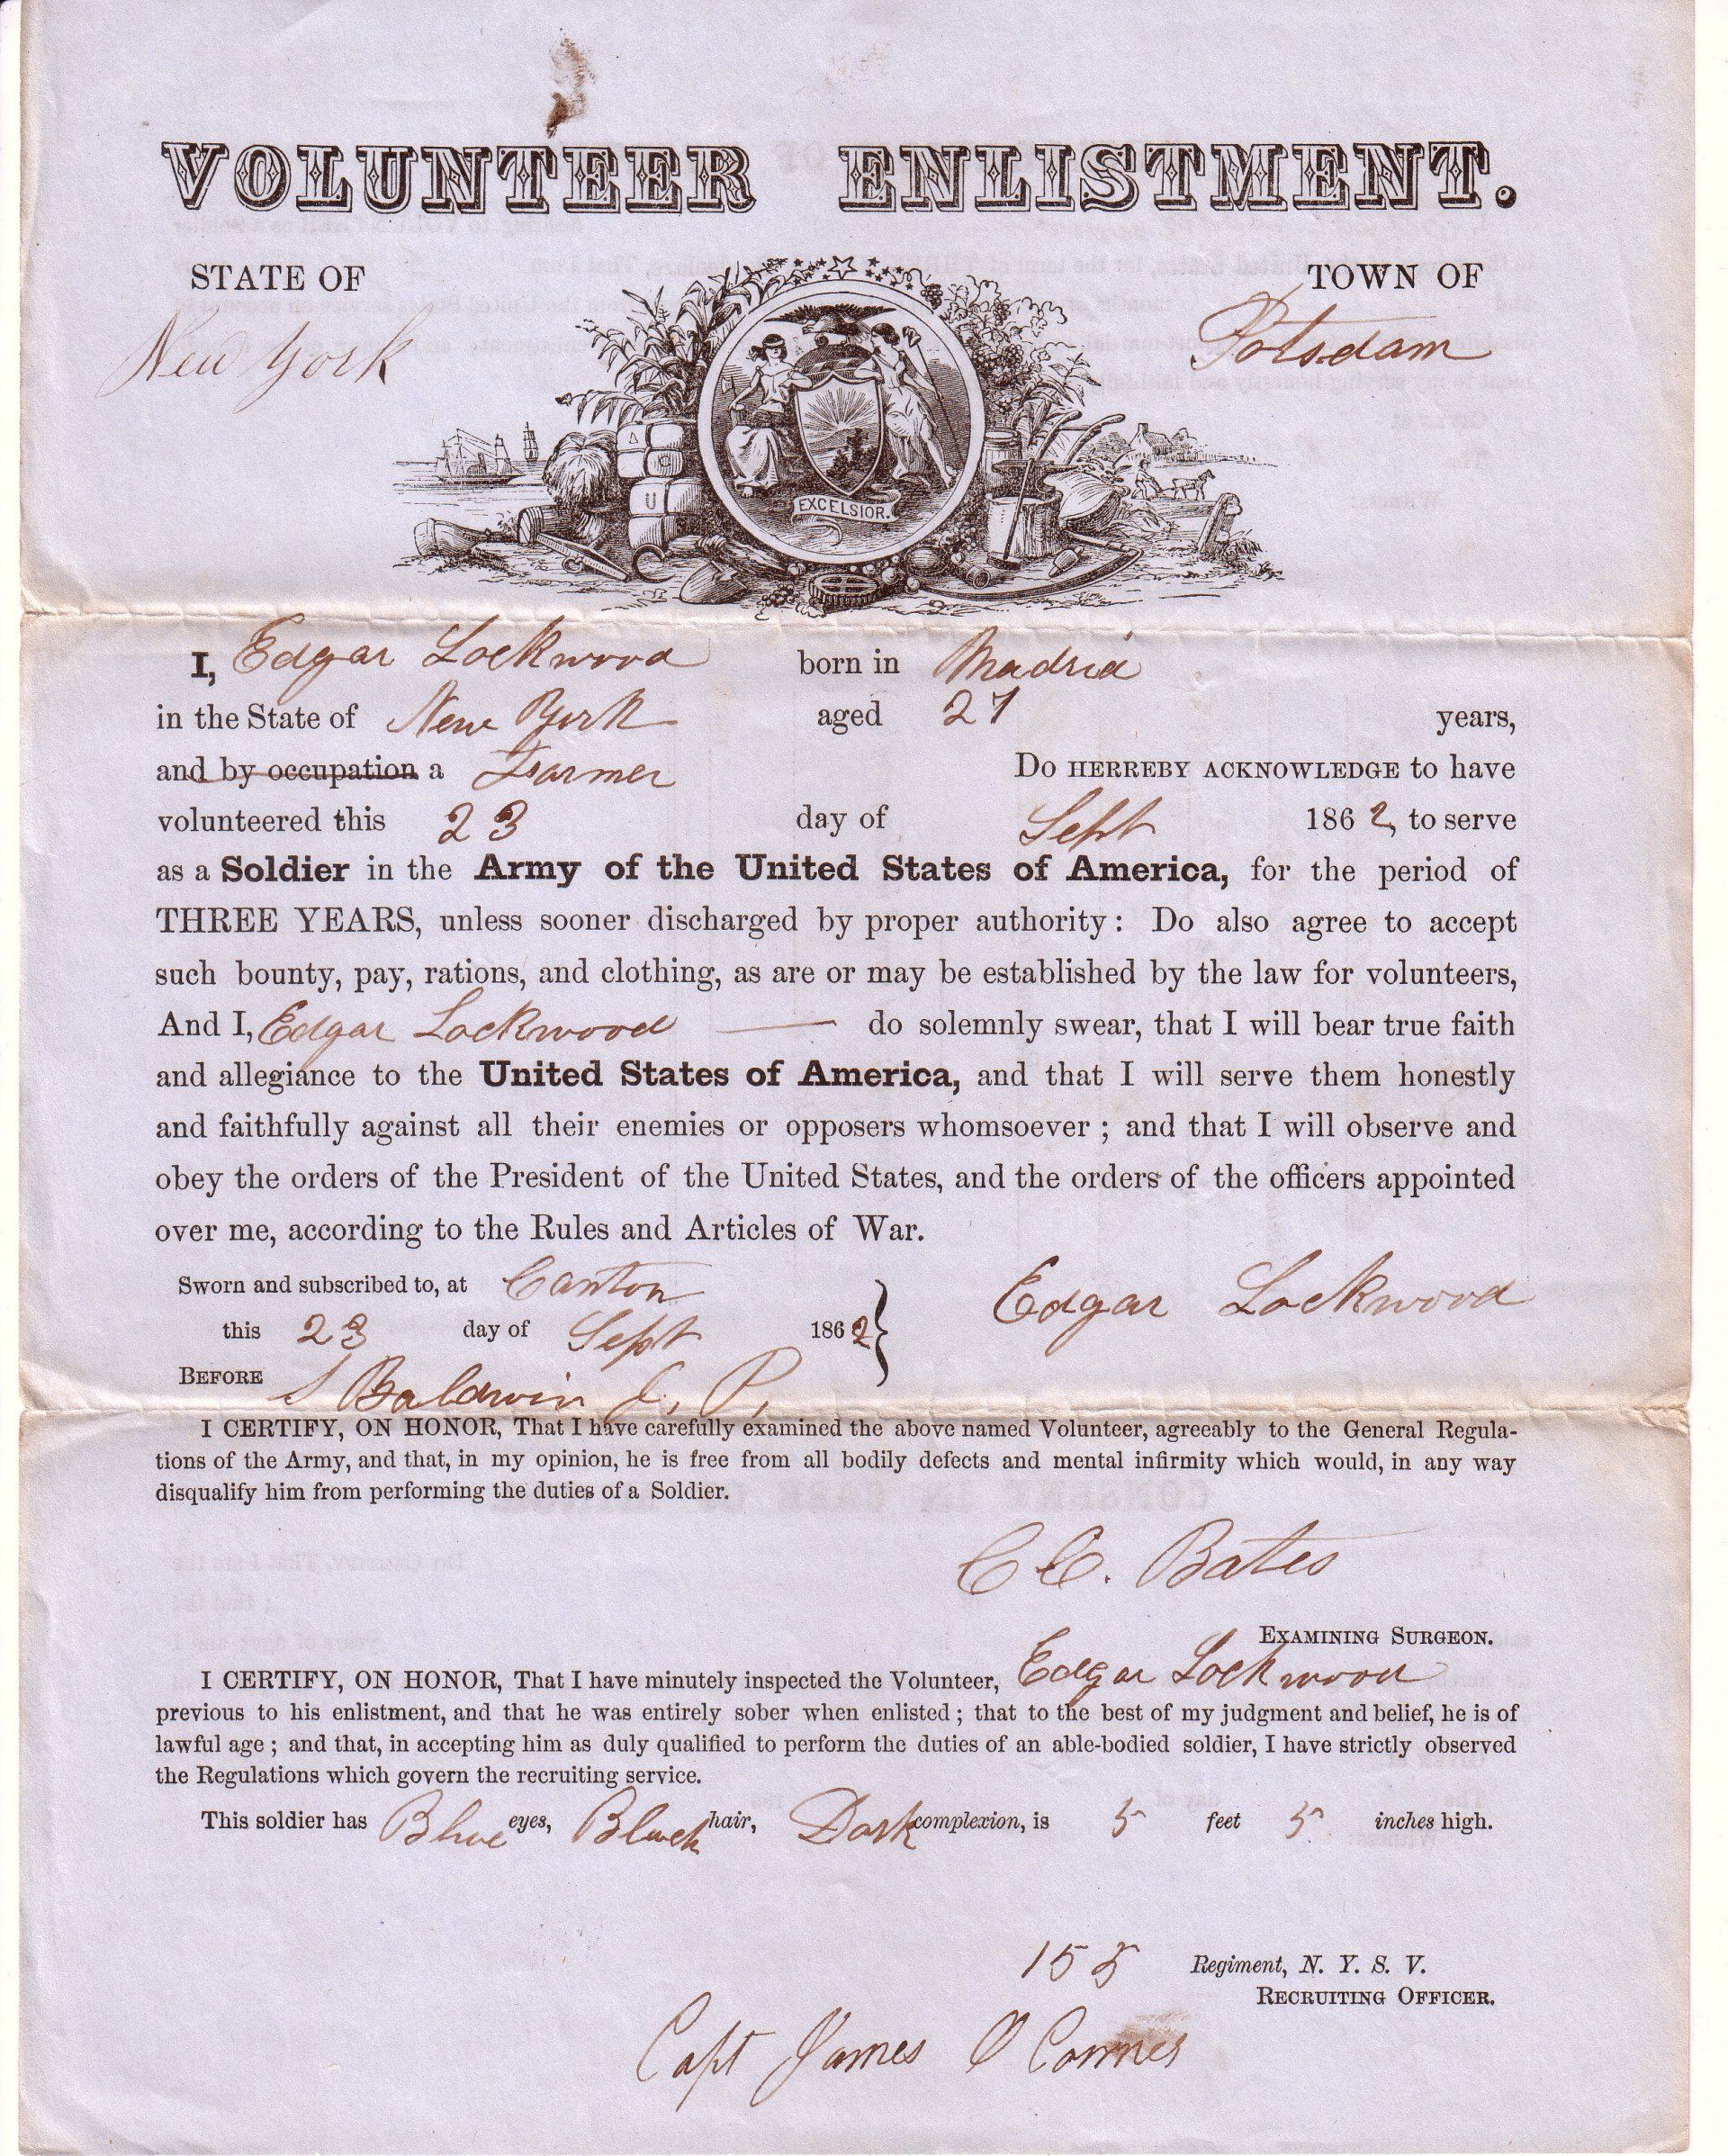 VOLUNTEER ENLISTMENT.
STATE OF
TOWN OF
New York
Potsdam
EXCELSIOR.
I, Edgar Lockwood born in Madrid
in the State of New York aged 27 years,
and by occupation a Farmer Do HERREBY ACKNOWLEDGE to have
volunteered this 23 day of Sept 1862, to serve
as a Soldier in the Army of the United States of America, for the period of
THREE YEARS, unless sooner discharged by proper authority: Do also agree to accept
such bounty, pay, rations, and clothing, as are or may be established by the law for volunteers,
And I, Edgar Lockwood — do solemnly swear, that I will bear true faith
and allegiance to the United States of America, and that I will serve them honestly
and faithfully against all their enemies or opposers whomsoever; and that I will observe and
obey the orders of the President of the United States, and the orders of the officers appointed
over me, according to the Rules and Articles of War.
Sworn and subscribed to, at Canton
Edgar Lockwood
this 23 day of Sept 1862
BEFORE S Baldwin J. P.
I CERTIFY, ON HONOR, That I have carefully examined the above named Volunteer, agreeably to the General Regula-
tions of the Army, and that, in my opinion, he is free from all bodily defects and mental infirmity which would, in any way
disqualify him from performing the duties of a Soldier.
C C. Bates
EXAMINING SURGEON.
I CERTIFY, ON HONOR, That I have minutely inspected the Volunteer, Edgar Lockwood
previous to his enlistment, and that he was entirely sober when enlisted; that to the best of my judgment and belief, he is of
lawful age; and that, in accepting him as duly qualified to perform the duties of an able-bodied soldier, I have strictly observed
the Regulations which govern the recruiting service.
This soldier has Blue eyes, Black hair, Dark complexion, is 5 feet 5 inches high.
155 Regiment, N. Y. S. V.
RECRUITING OFFICER.
Capt James O Conner